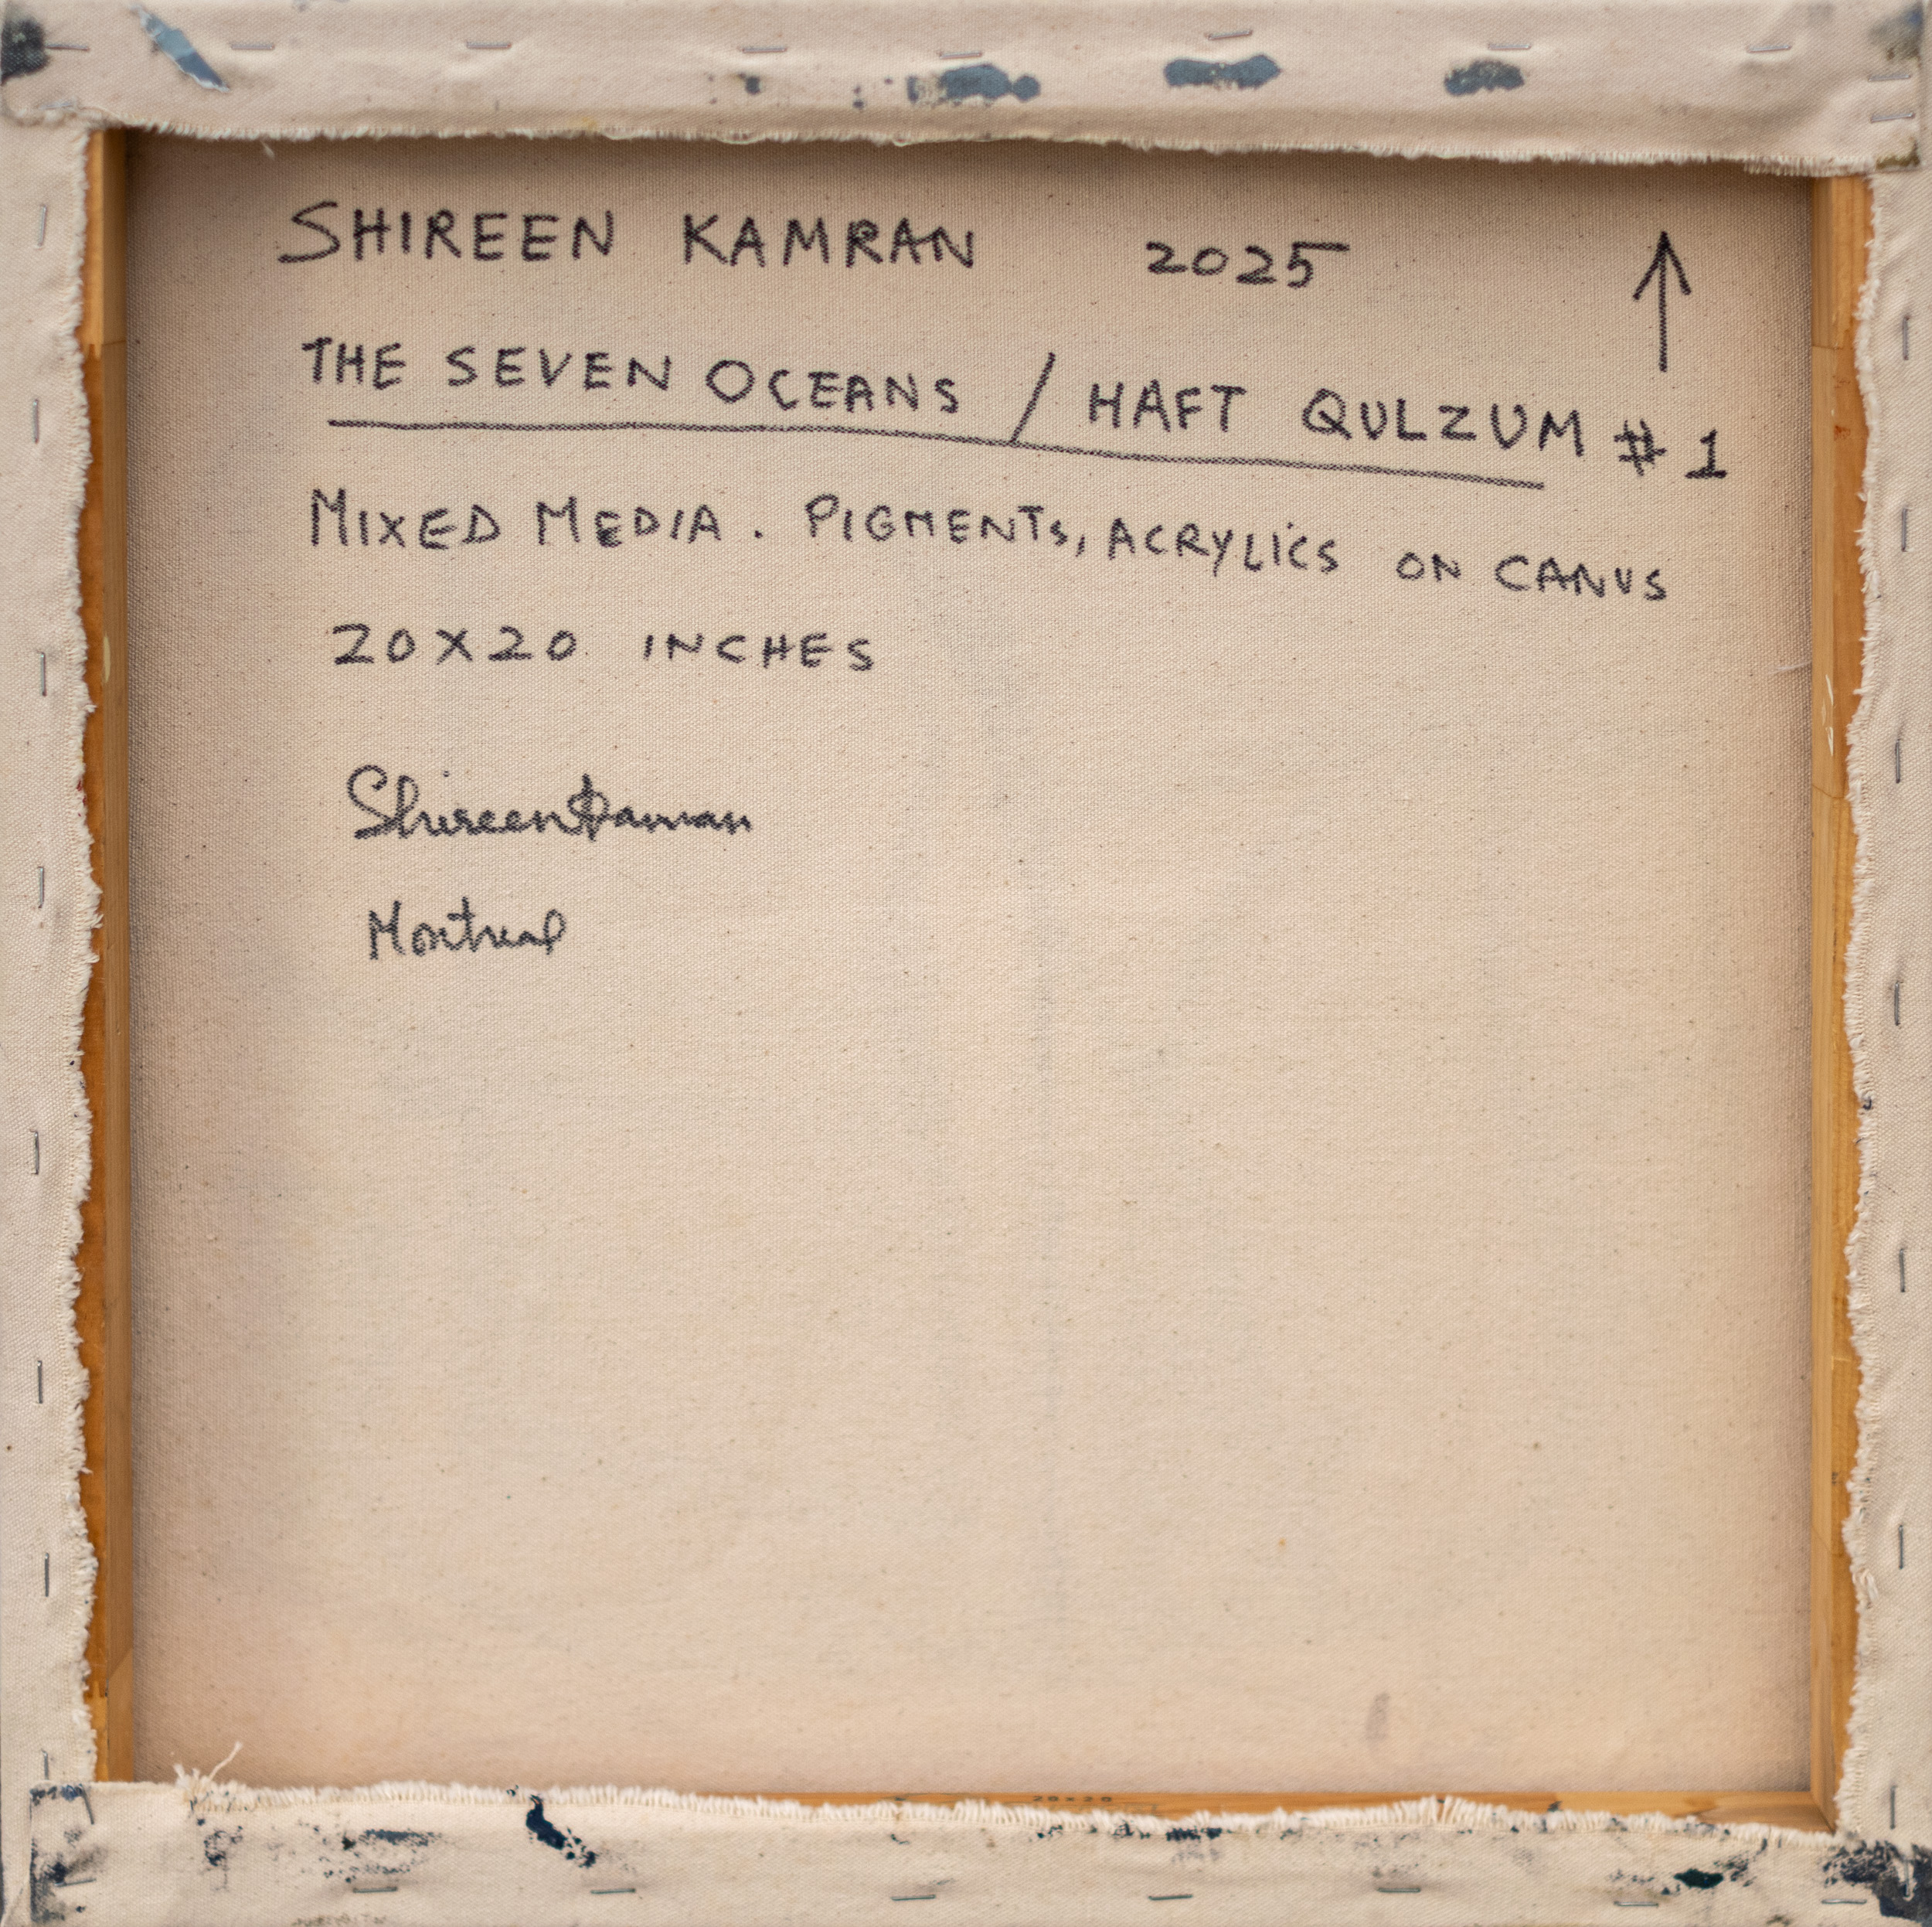 SHIREEN KAMRAN 2025
THE SEVEN OCEANS / HAFT QULZUM # 1
MIXED MEDIA. PIGMENTS, ACRYLICS ON CANVS
20X20 INCHES
Shireen Kamran
Montreal
20x20